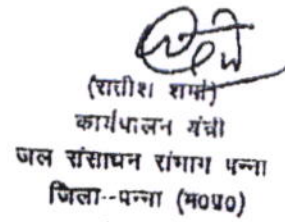 (सतीश शर्मा)
कार्यपालन यंत्री
जल संसाधन संभाग पन्ना
जिला--पन्ना (म०प्र०)